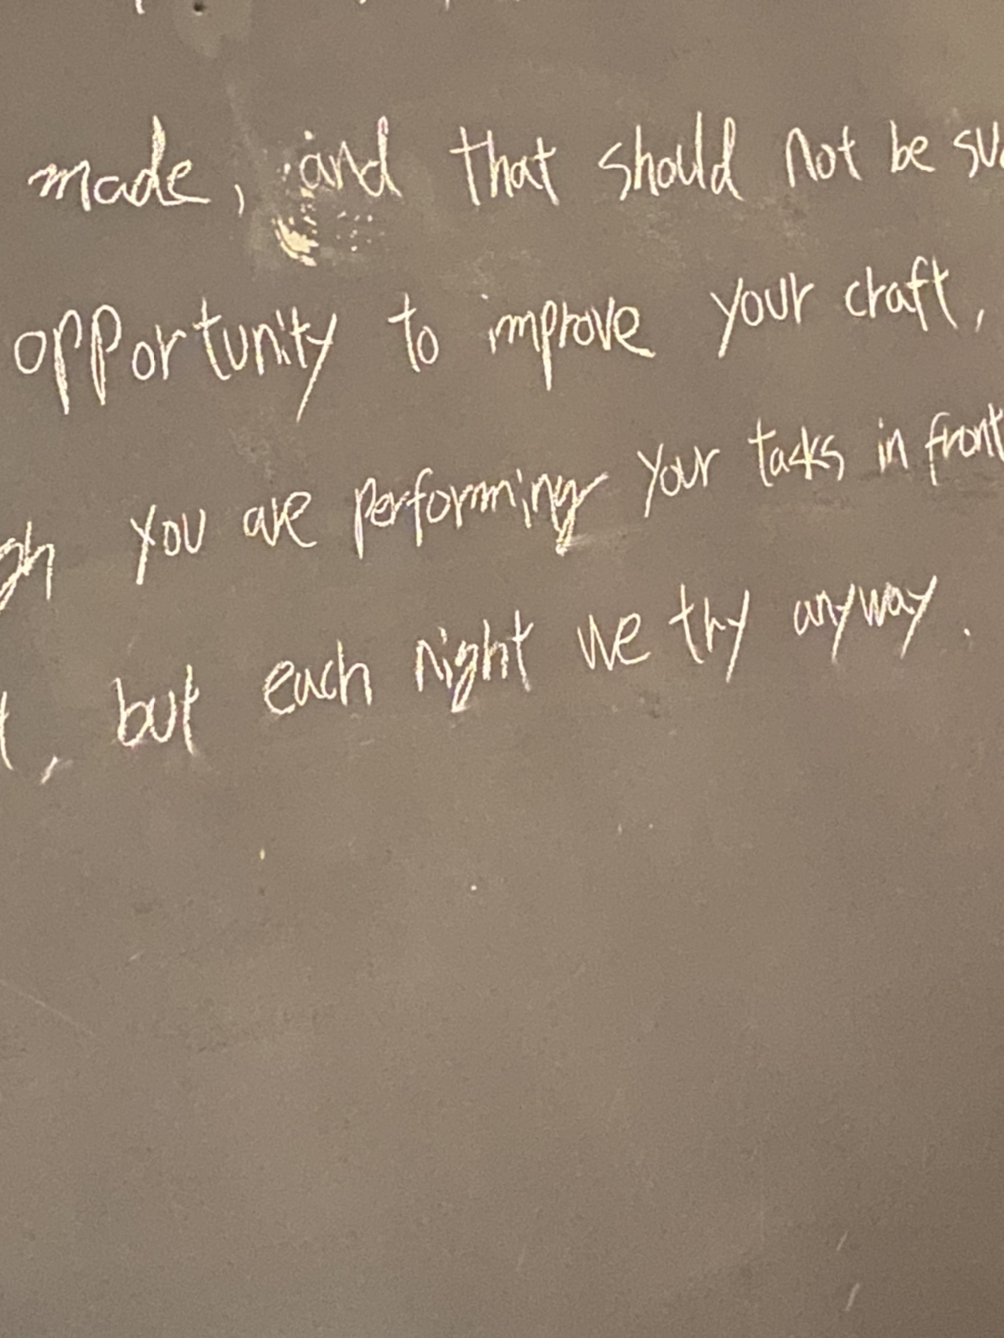 made, and that should not be su
opportunity to improve your craft,
gh you are performing your tacks in front
, but each night we try anyway.